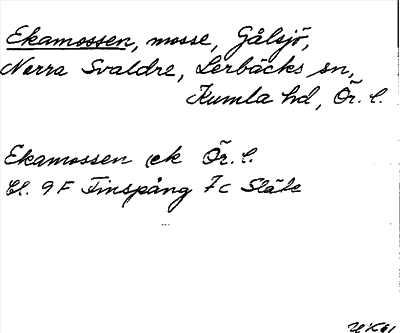 Ekamossen, mosse, Gålsjö,
Norra Svaldre, Lerbäcks sn,
Kumla hd, Ör. l.
Ekamossen ek Ör. l.
Bl. 9 F Finspång 7c Släle